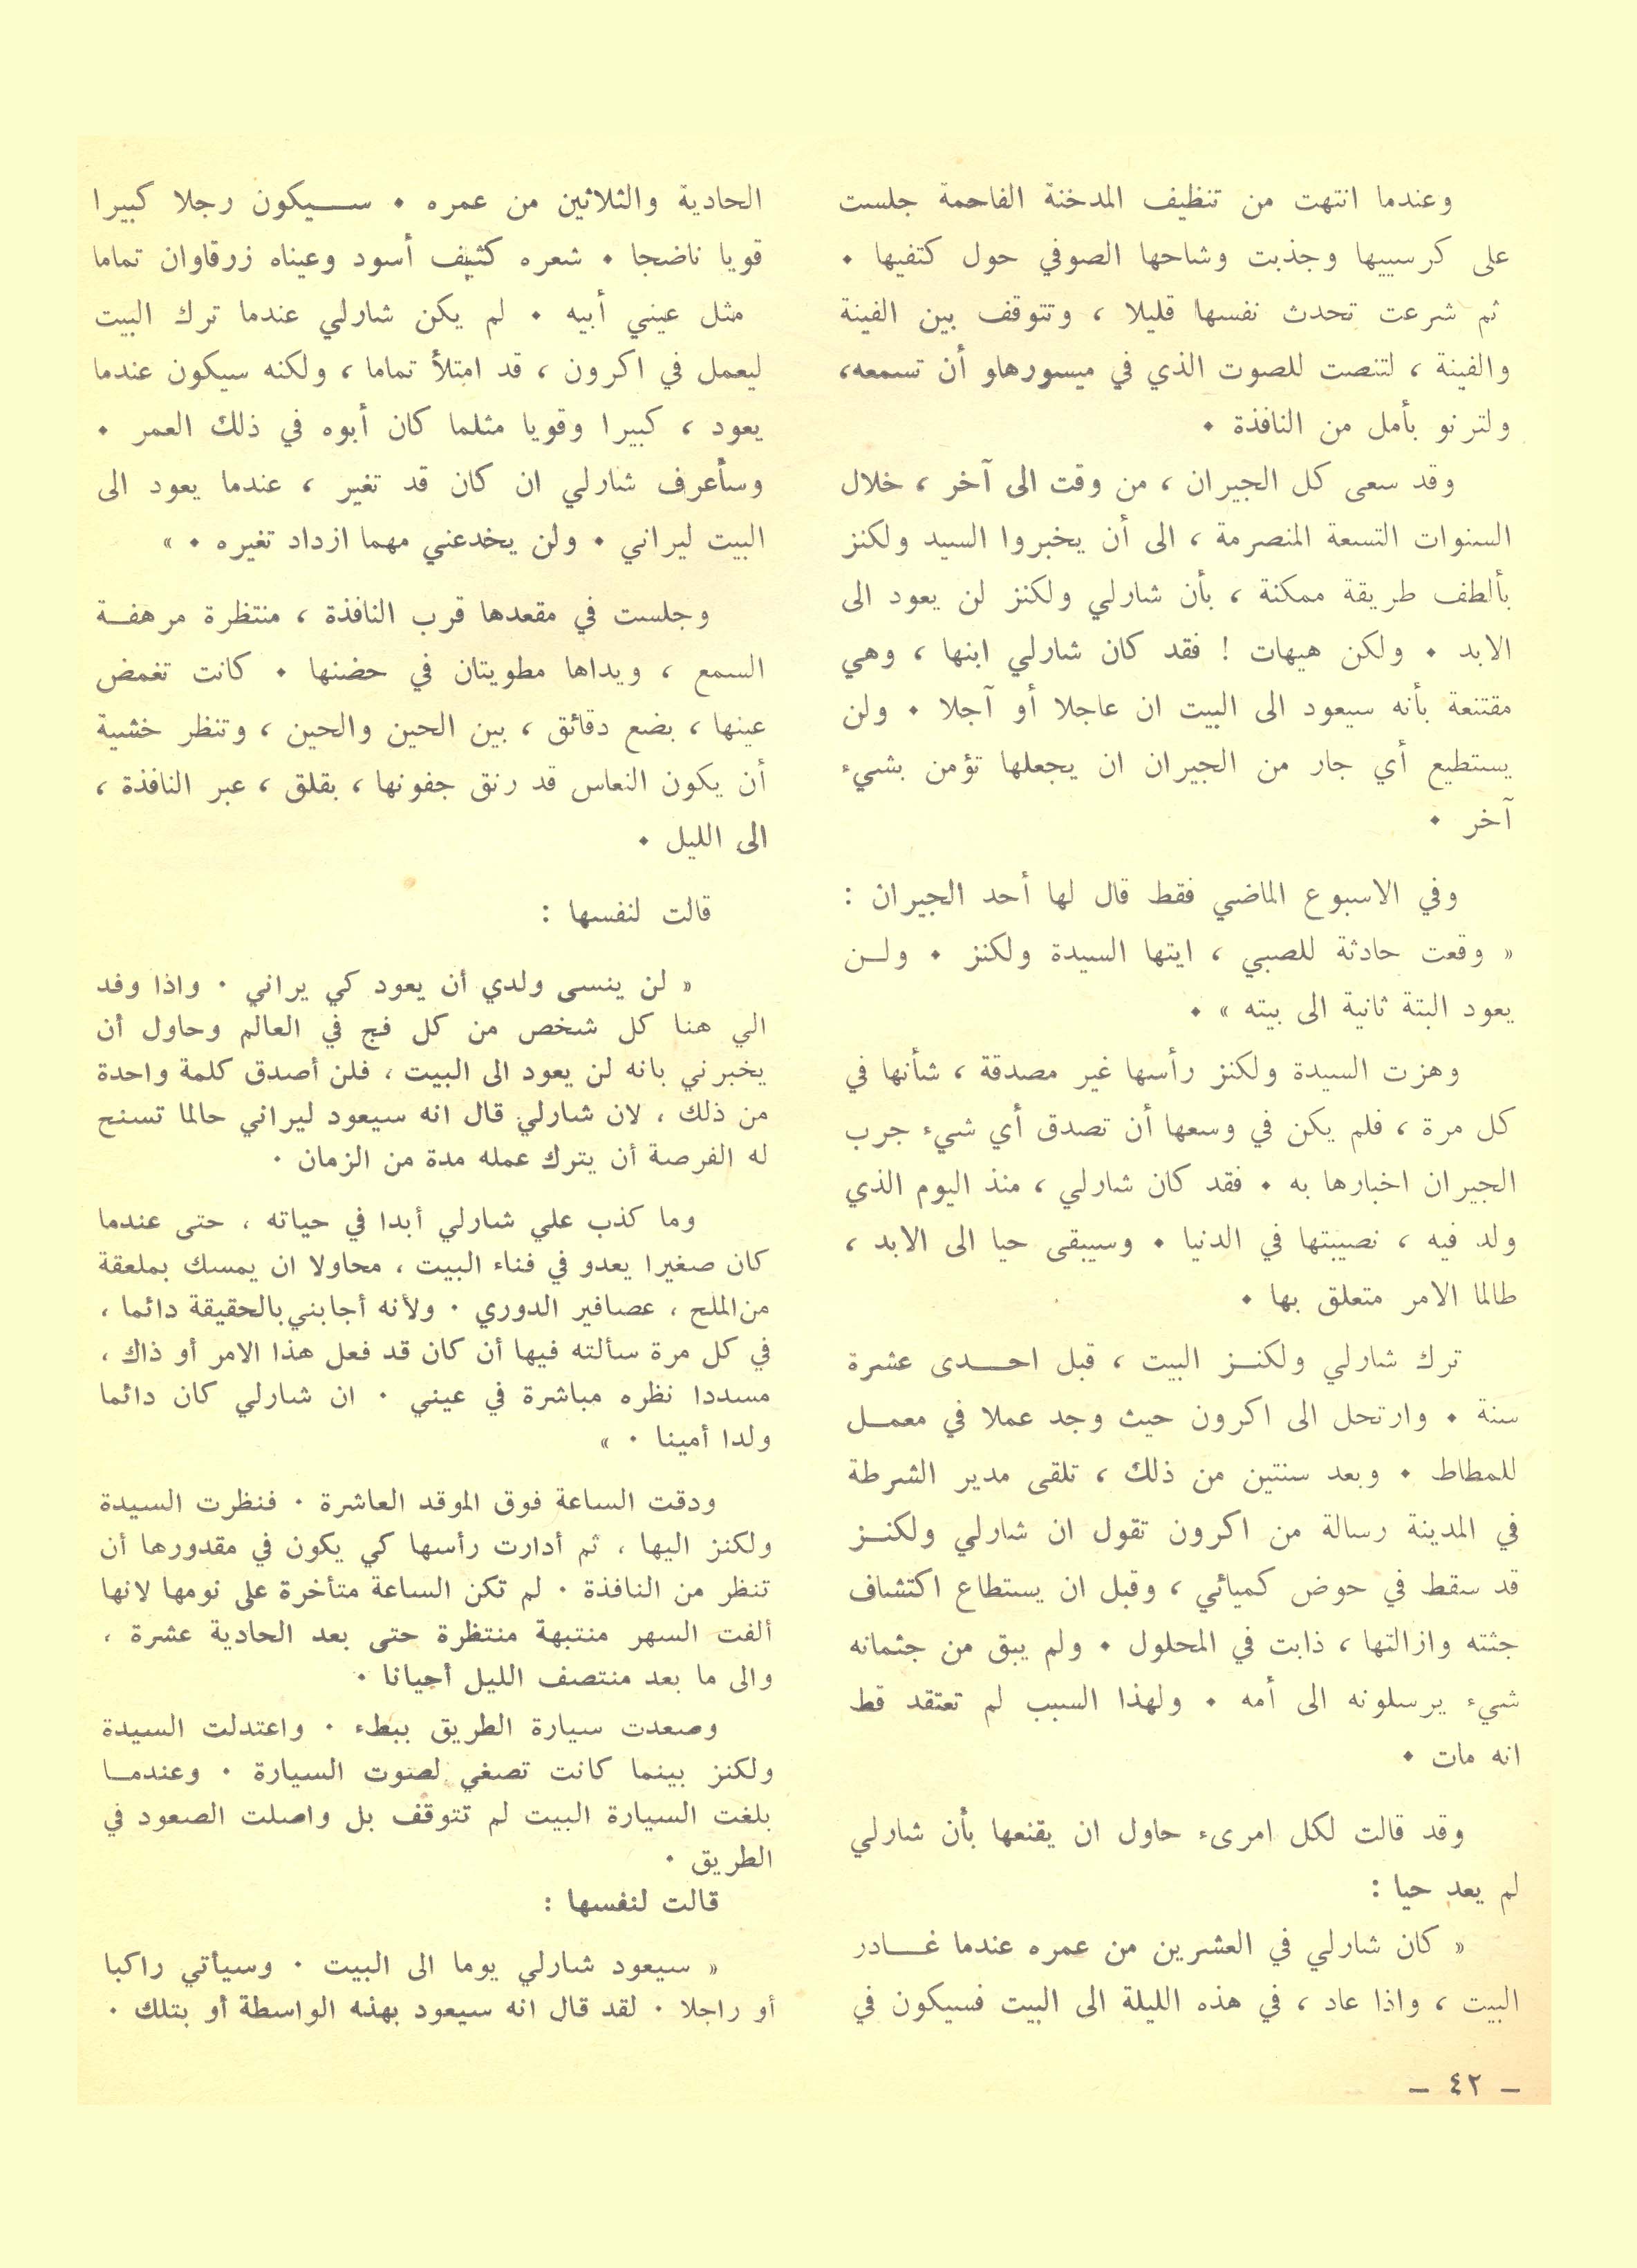 وعندما انتهت من تنظيف المدخنة الفاحمة جلست
على كرسييها وجذبت وشاحها الصوفي حول كتفيها .
ثم شرعت تحدث نفسها قليلا ، وتتوقف بين الفينة
والفينة ، لتنصت للصوت الذي في ميسورهاو أن تسمعه،
ولترنو بأمل من النافذة .
وقد سعى كل الجيران ، من وقت الى آخر ، خلال
السنوات التسعة المنصرمة ، الى أن يخبروا السيد ولكنز
بألطف طريقة ممكنة ، بأن شارلي ولكنز لن يعود الى
الابد . ولكن هيهات ! فقد كان شارلي ابنها ، وهي
مقتنعة بأنه سيعود الى البيت ان عاجلا أو آجلا . ولن
يستطيع أي جار من الجيران ان يجعلها تؤمن بشيء
آخر .
وفي الاسبوع الماضي فقط قال لها أحد الجيران :
« وقعت حادثة للصبي ، ايتها السيدة ولكنز . ولـن
يعود البتة ثانية الى بيته » .
وهزت السيدة ولكنز رأسها غير مصدقة ، شأنها في
كل مرة ، فلم يكن في وسعها أن تصدق أي شيء جرب
الجيران اخبارها به . فقد كان شارلي ، منذ اليوم الذي
ولد فيه ، نصيبتها في الدنيا . وسيبقى حيا الى الابد ،
طالما الامر متعلق بها .
ترك شارلي ولكنـز البيت ، قبل احـدى عشرة
سنة . وارتحل الى اكرون حيث وجد عملا في معمـل
للمطاط . وبعد سنتين من ذلك ، تلقى مدير الشرطة
في المدينة رسالة من اكرون تقول ان شارلي ولكنـز
قد سقط في حوض كميائي ، وقبل ان يستطاع اكتشاف
جثته وازالتها ، ذابت في المحلول . ولم يبق من جثمانه
شيء يرسلونه الى أمه . ولهذا السبب لم تعتقد قط
انه مات .
وقد قالت لكل امرىء حاول ان يقنعها بأن شارلي
لم يعد حيا :
« كان شارلي في العشرين من عمره عندما غـادر
البيت ، واذا عاد ، في هذه الليلة الى البيت فسيكون في
الحادية والثلاثين من عمره . سـيكون رجلا كبيرا
قويا ناضجا . شعره كثيف أسود وعيناه زرقاوان تماما
مثل عيني أبيه . لم يكن شارلي عندما ترك البيت
ليعمل في اكرون ، قد امتلأ تماما ، ولكنه سيكون عندما
يعود ، كبيرا وقويا مثلما كان أبوه في ذلك العمر .
وسأعرف شارلي ان كان قد تغير ، عندما يعود الى
البيت ليراني . ولن يخدعني مهما ازداد تغيره . »
وجلست في مقعدها قرب النافذة ، منتظرة مرهفـة
السمع ، ويداها مطويتان في حضنها . كانت تغمض
عينها ، بضع دقائق ، بين الحين والحين ، وتنظر خشية
أن يكون النعاس قد رنق جفونها ، بقلق ، عبر النافذة ،
الى الليل .
قالت لنفسها :
« لن ينسى ولدي أن يعود كي يراني . واذا وفد
الي هنا كل شخص من كل فج في العالم وحاول أن
يخبرني بانه لن يعود الى البيت ، فلن أصدق كلمة واحدة
من ذلك ، لان شارلي قال انه سيعود ليراني حالما تسنح
له الفرصة أن يترك عمله مدة من الزمان .
وما كذب علي شارلي أبدا في حياته ، حتى عندما
كان صغيرا يعدو في فناء البيت ، محاولا ان يمسك بملعقة
من الملح ، عصافير الدوري . ولأنه أجابني بالحقيقة دائما ،
في كل مرة سألته فيها أن كان قد فعل هذا الامر أو ذاك ،
مسددا نظره مباشرة في عيني . ان شارلي كان دائما
ولدا أمينا . »
ودقت الساعة فوق الموقد العاشرة . فنظرت السيدة
ولكنز اليها ، ثم أدارت رأسها كي يكون في مقدورها أن
تنظر من النافذة . لم تكن الساعة متأخرة على نومها لانها
ألفت السهر منتبهة منتظرة حتى بعد الحادية عشرة ،
والى ما بعد منتصف الليل أحيانا .
وصعدت سيارة الطريق ببطء . واعتدلت السيدة
ولكنز بينما كانت تصغي لصوت السيارة . وعندمـا
بلغت السيارة البيت لم تتوقف بل واصلت الصعود في
الطريق .
قالت لنفسها :
« سيعود شارلي يوما الى البيت . وسيأتي راكبا
أو راجلا . لقد قال انه سيعود بهذه الواسطة أو بتلك .
– ٤٢ –